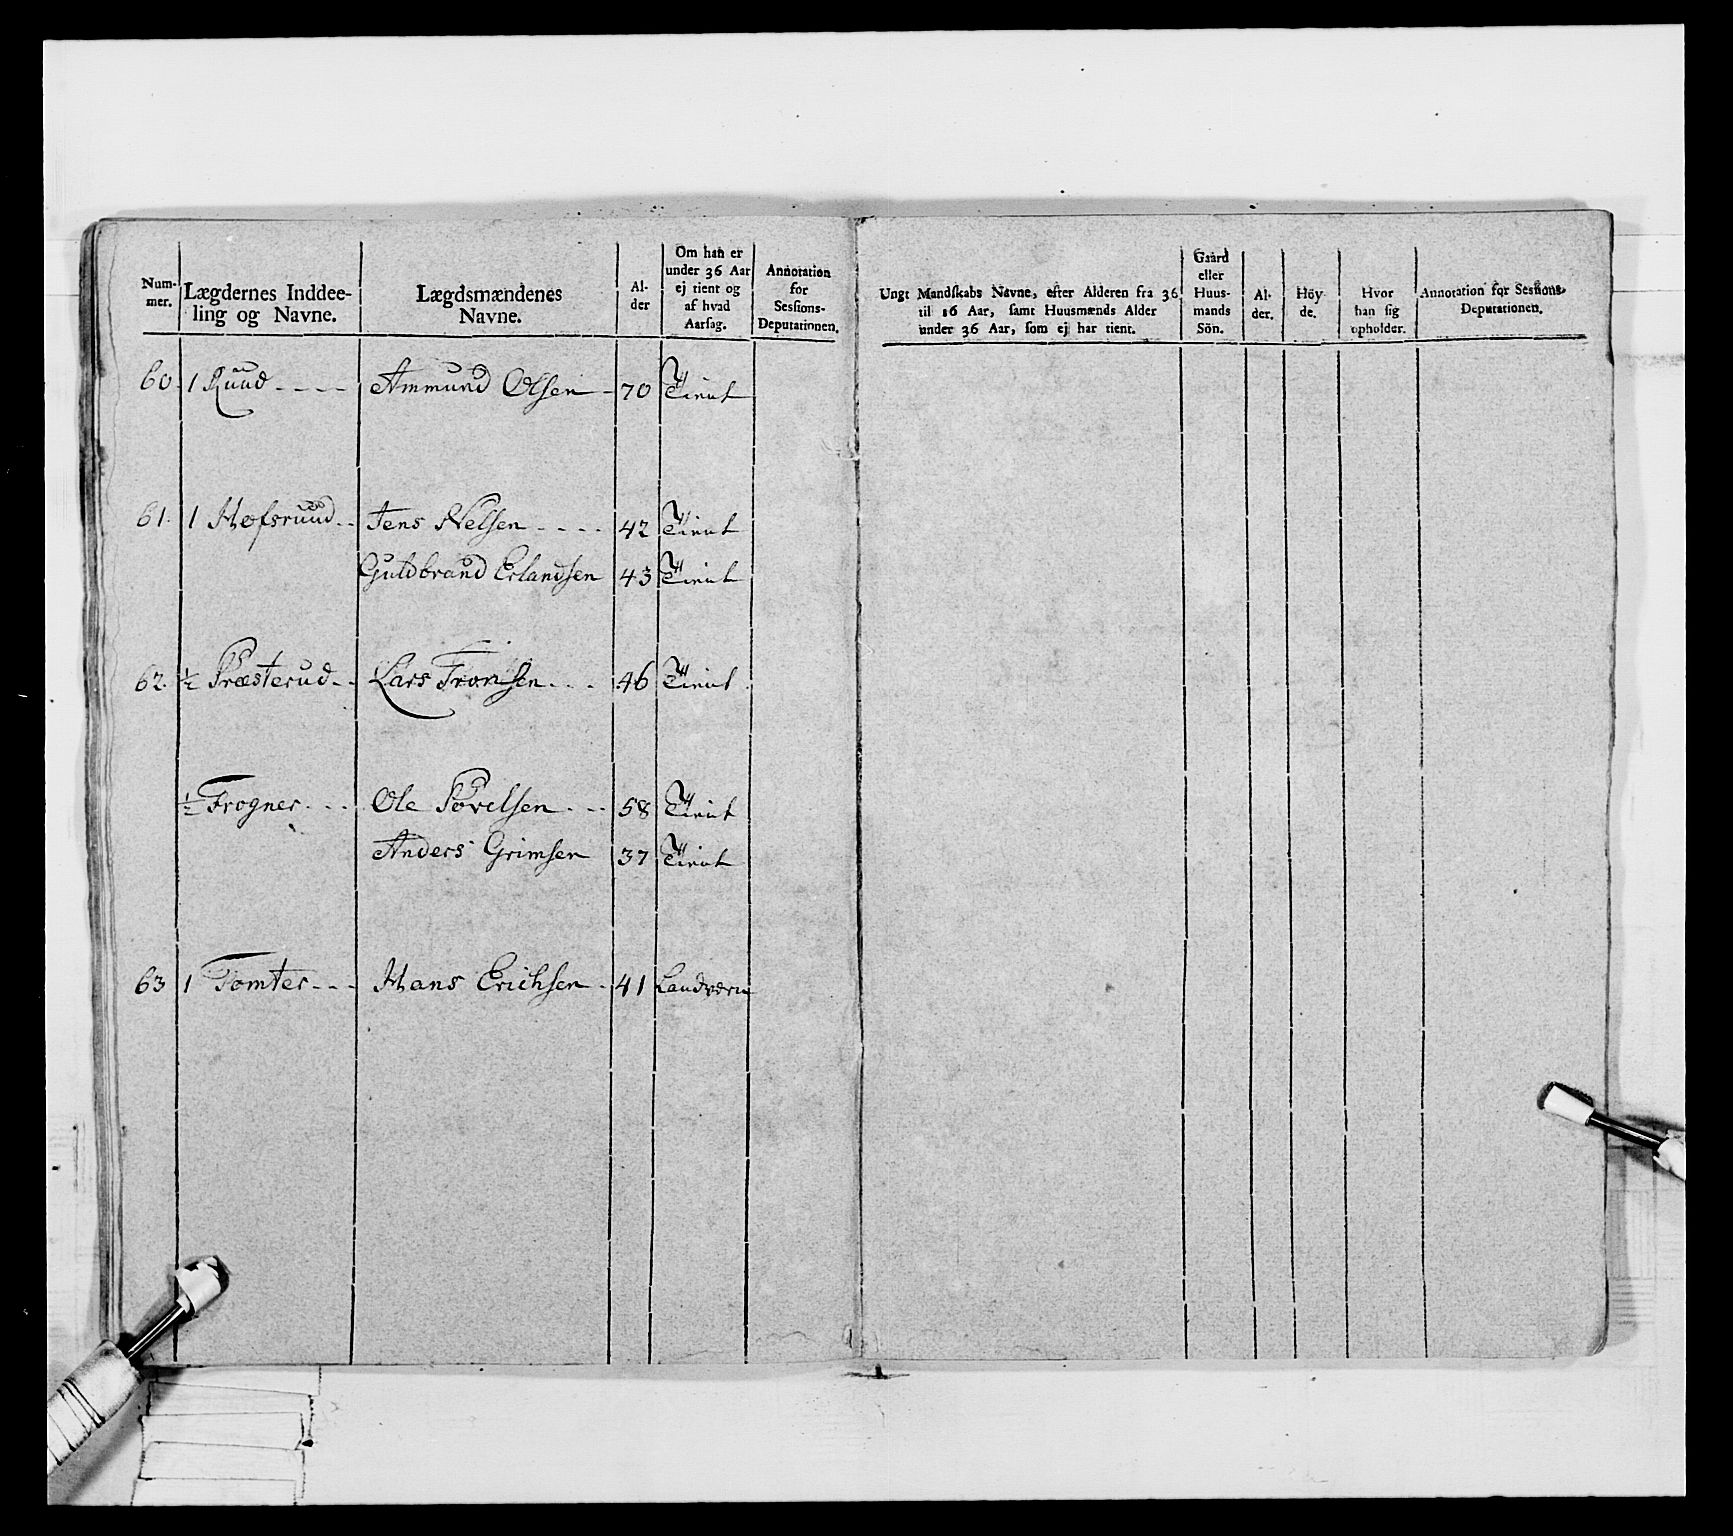 Num-
mer.
Lægdernes Inddee-
ling og Navne.
Lægdsmændenes
Navne.
Al-
der
Om han er
under 36 Aar
ej tient og
af hvad
Aarsag.
Annotation
for
Sessions-
Deputationen.
60. 1 Ruud - - - - Ammund Olsen - 70 Tient
61. 1 Hofsruud - - Jens Nelsen - - - - 42 Tient
Guldbrand Erlandsen 43 Tient
62. ½ Præsterud - - Lars Fronsen - - - 46 Tient
½ Frogner - - - Ole Povelsen - - - 58 Tient
Anders Grimsen 37 Tient
63 1 Tomter - - - Hans Erichsen - 41 Landværn
Ungt Mandskabs Navne, efter Alderen fra 36
til 16 Aar, samt Huusmænds Alder
under 36 Aar, som ej har tient.
Gaard
eller
Huus-
mands
Sön.
Al-
der.
Höy-
de.
Hvor
han sig
opholder.
Annotation for Sessions-
Deputationen.